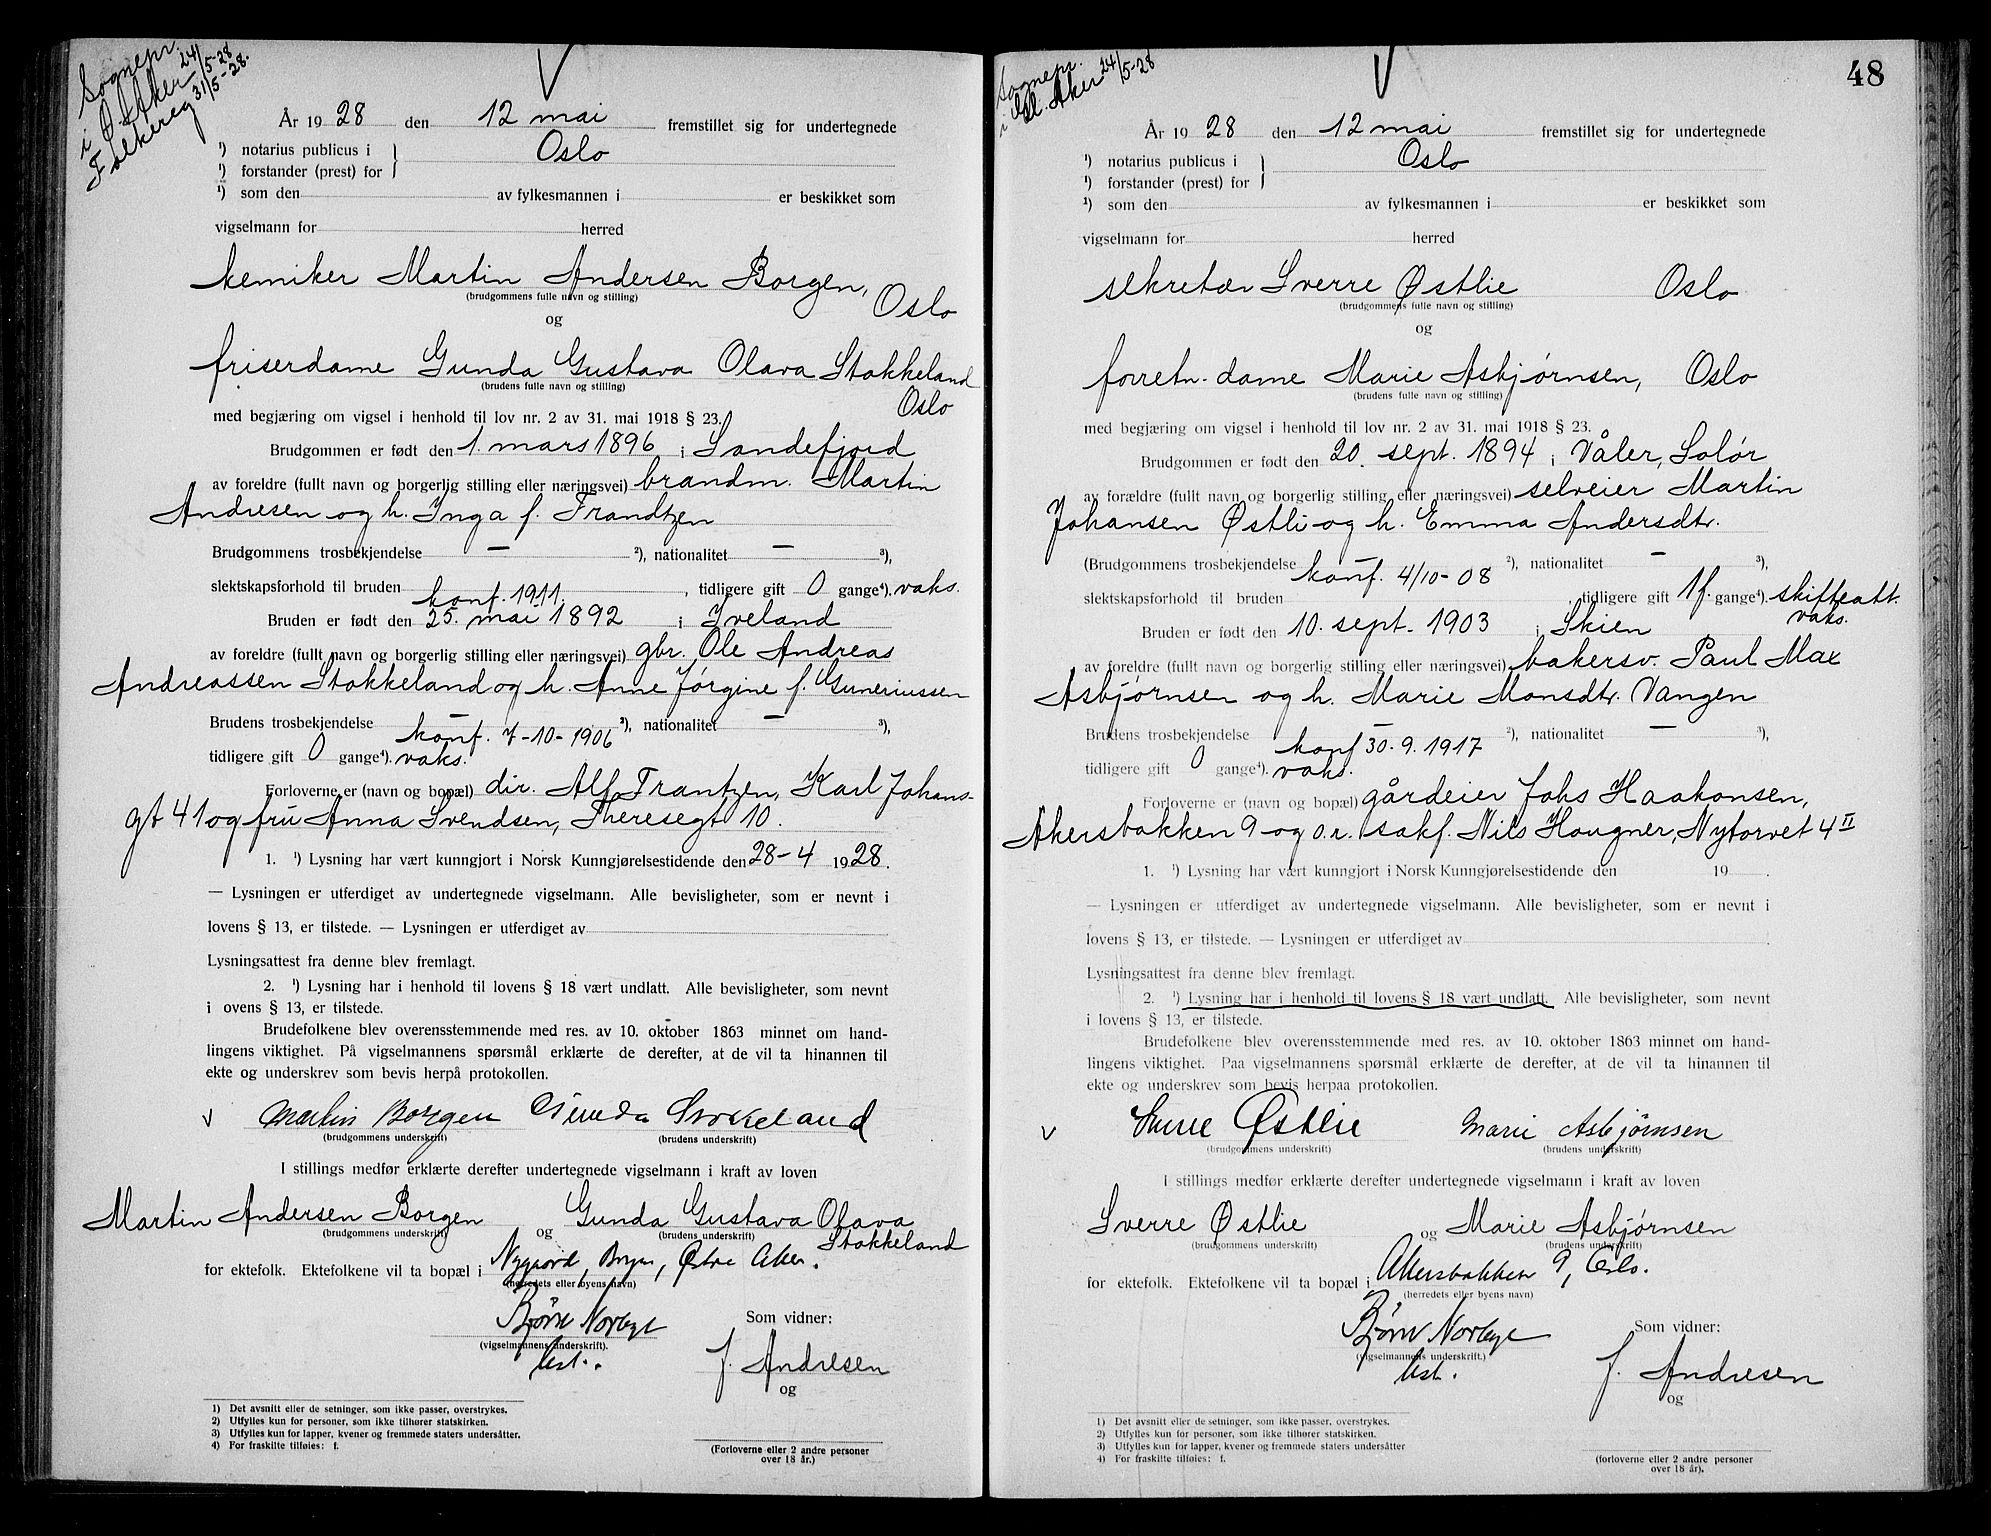 Sognepr.
i Ø. Aker 24/5-28
Folkereg 31/5-28.
År 1928 den 12 mai fremstillet sig for undertegnede
¹) notarius publicus i Oslo
¹) forstander (prest) for
¹) som den av fylkesmannen i er beskikket som
vigselmann for herred
kemiker Martin Andersen Borgen,
(brudgommens fulle navn og stilling)
Oslo
og
friserdame Gunda Gustava Olava Stokkeland
(brudens fulle navn og stilling)
Oslo
med begjæring om vigsel i henhold til lov nr. 2 av 31. mai 1918 § 23.
Brudgommen er født den 1. mars 1896 i Sandefjord
av foreldre (fullt navn og borgerlig stilling eller næringsvei) brandm. Martin
Andresen og h. Inga f. Frandtzen
Brudgommens trosbekjendelse — ²), nationalitet — ³),
slektskapsforhold til bruden , tidligere gift 0 gange⁴). vaks.
konf. 1911.
Bruden er født den 25. mai 1892 i Iveland
av foreldre (fullt navn og borgerlig stilling eller næringsvei) gbr. Ole Andreas
Andreassen Stokkeland og h. Anne Jørgine f. Guneriussen
Brudens trosbekjendelse — ²), nationalitet — ³),
konf. 7-10-1906
tidligere gift 0 gange⁴). vaks.
Forloverne er (navn og bopæl) dir. Alf Frantzen, Karl Johans-
gt 41 og fru Anna Svendsen, Theresegt 10.
1. ¹) Lysning har vært kunngjort i Norsk Kunngjørelsestidende den 28-4 1928.
— Lysningen er utferdiget av undertegnede vigselmann. Alle bevisligheter, som er nevnt i
lovens § 13, er tilstede. — Lysningen er utferdiget av
Lysningsattest fra denne blev fremlagt.
2. ¹) Lysning har i henhold til lovens § 18 vært undlatt. Alle bevisligheter, som nevnt
i ovens § 13, er tilstede.
Brudefolkene blev overensstemmende med res. av 10. oktober 1863 minnet om hand-
lingens viktighet. På vigselmannens spørsmål erklærte de derefter, at de vil ta hinannen til
ekte og underskrev som bevis herpå protokollen.
Martin Borgen Gunda Stokkeland
(brudgommens underskrift) (brudens underskrift)
I stillings medfør erklærte derefter undertegnede vigselmann i kraft av loven
Martin Andersen Borgen og Gunda Gustava Olava
(brudgommens underskrift) (brudens underskrift)
Stokkeland
for ektefolk. Ektefolkene vil ta bopæl i Nygaard, Bryn, Østre Aker.
(herredets eller byens navn)
Bjørn Norbye Som vidner:
(vigselmannens underskrift).
ast. J. Andresen
og
1) Det avsnitt eller de setninger, som ikke passer, overstrykes.
2) Utfylles kun for personer, som ikke tilhører statskirken.
3) Utfylles kun for lapper, kvener og fremmede staters undersåtter.
4) For fraskilte tilføies: f.
(Forloverne eller 2 andre personer
over 18 år.)
48
Sognepr.
i Gl. Aker 24/5-28
År 1928 den 12 mai fremstillet sig for undertegnede
¹) notarius publicus i Oslo
¹) forstander (prest) for
¹) som den av fylkesmannen i er beskikket som
vigselmann for herred
sekretær Sverre Østlie Oslo
(brudgommens fulle navn og stilling)
og
forretn. dame Marie Asbjørnsen, Oslo
(brudens fulle navn og stilling)
med begjæring om vigsel i henhold til lov nr. 2 av 31. mai 1918 § 23.
Brudgommen er født den 20. sept. 1894 i Våler, Solør
av forældre (fullt navn og borgerlig stilling eller næringsvei) selveier Martin
Johansen Østli og h. Emma Andersdtr.
(Brudgommens trosbekjendelse ²), nationalitet — ³),
konf. 4/10-08
slektskapsforhold til bruden , tidligere gift 1 f. gange⁴). skifteatt.
vaks.
Bruden er født den 10. sept. 1903 i Skien
av foreldre (fullt navn og borgerlig stilling eller næringsvei) bakersv. Paul Max
Asbjørnsen og h. Marie Monsdtr. Vangen
Brudens trosbekjendelse — ²), nationalitet — ³),
konf 30.9.1917
tidligere gift 0 gange⁴). vaks.
Forloverne er (navn og bopæl) gårdeier Johs Haakonsen,
Akersbakken 9 og o.r. sakf. Nils Hougner, Nytorvet 4 II
1. ¹) Lysning har vært kunngjort i Norsk Kunngjørelsestidende den 19 .
— Lysningen er utferdiget av undertegnede vigselmann. Alle bevisligheter, som er nevnt i
lovens § 13, er tilstede. — Lysningen er utferdiget av .
Lysningsattest fra denne blev fremlagt.
2. ¹) Lysning har i henhold til lovens § 18 vært undlatt. Alle bevisligheter, som nevnt
i lovens § 13, er tilstede.
Brudefolkene blev overensstemmende med res. av 10. oktober 1863 minnet om hand-
lingens viktighet. Paa vigselmannens spørsmål erklærte de derefter, at de vil ta hinannen til
ekte og underskrev som bevis herpaa protokollen.
Sverre Østlie Marie Asbjørnsen
(brudgommens underskrift) (brudens underskrift)
I stillings medfør erklærte derefter undertegnede vigselmann i kraft av loven
Sverre Østlie og Marie Asbjørnsen
(brudgommens underskrift) (brudens underskrift)
for ektefolk. Ektefolkene vil ta bopæl i Akersbakken 9, Oslo.
(herredets eller byens navn)
Bjørn Norbye Som vidner:
(vigselmannens underskrift.)
ast. J. Andresen
og
1) Det avsnitt eller de setninger, som ikke passer, overstrykes.
2) Utfylles kun for personer, som ikke tilhører statskirken.
3) Utfylles kun for lapper, kvener og fremmede staters undersåtter
4) For fraskilte tilføies: f.
(forloverne eller 2 andre personer
over 18 år).